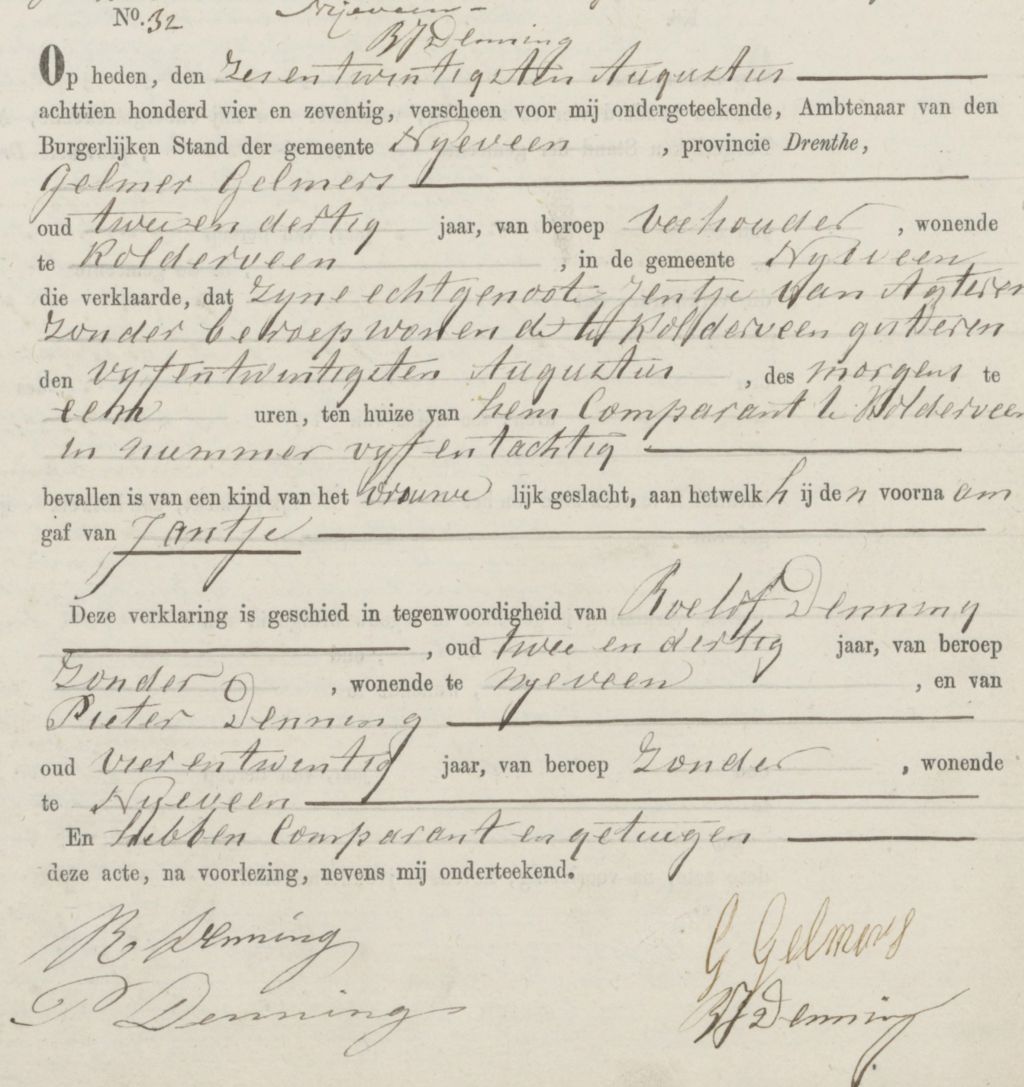 No. 32
Nijeveen
BJ Denning
Op heden, den Zesentwintigsten Augustus
achttien honderd vier en zeventig, verscheen voor mij ondergeteekende, Ambtenaar van den
Burgerlijken Stand der gemeente Nyeveen, provincie Drenthe,
Gelmer Gelmers
oud twee en dertig jaar, van beroep Veehouder, wonende
te Kolderveen, in de gemeente Nyeveen
die verklaarde, dat Zyne echtgenoote Jentje van Agteren
Zonder beroep wonende te Kolderveen gisteren
den Vyfentwintigsten Augustus, des morgens te
een uren, ten huize van hem Comparant te Kolderveen
in nummer vyf en tachtig
bevallen is van een kind van het vrouwe lijk geslacht, aan hetwelk h ij de n voorna am
gaf van Jantje
Deze verklaring is geschied in tegenwoordigheid van Roelof Denning
, oud twee en dertig jaar, van beroep
Zonder, wonende te Nyeveen, en van
Pieter Denning
oud vier en twintig jaar, van beroep Zonder, wonende
te Nyeveen
En hebben Comparant en getuigen
deze acte, na voorlezing, nevens mij onderteekend.
R Denning
G Gelmers
P Denning
BJ Denning